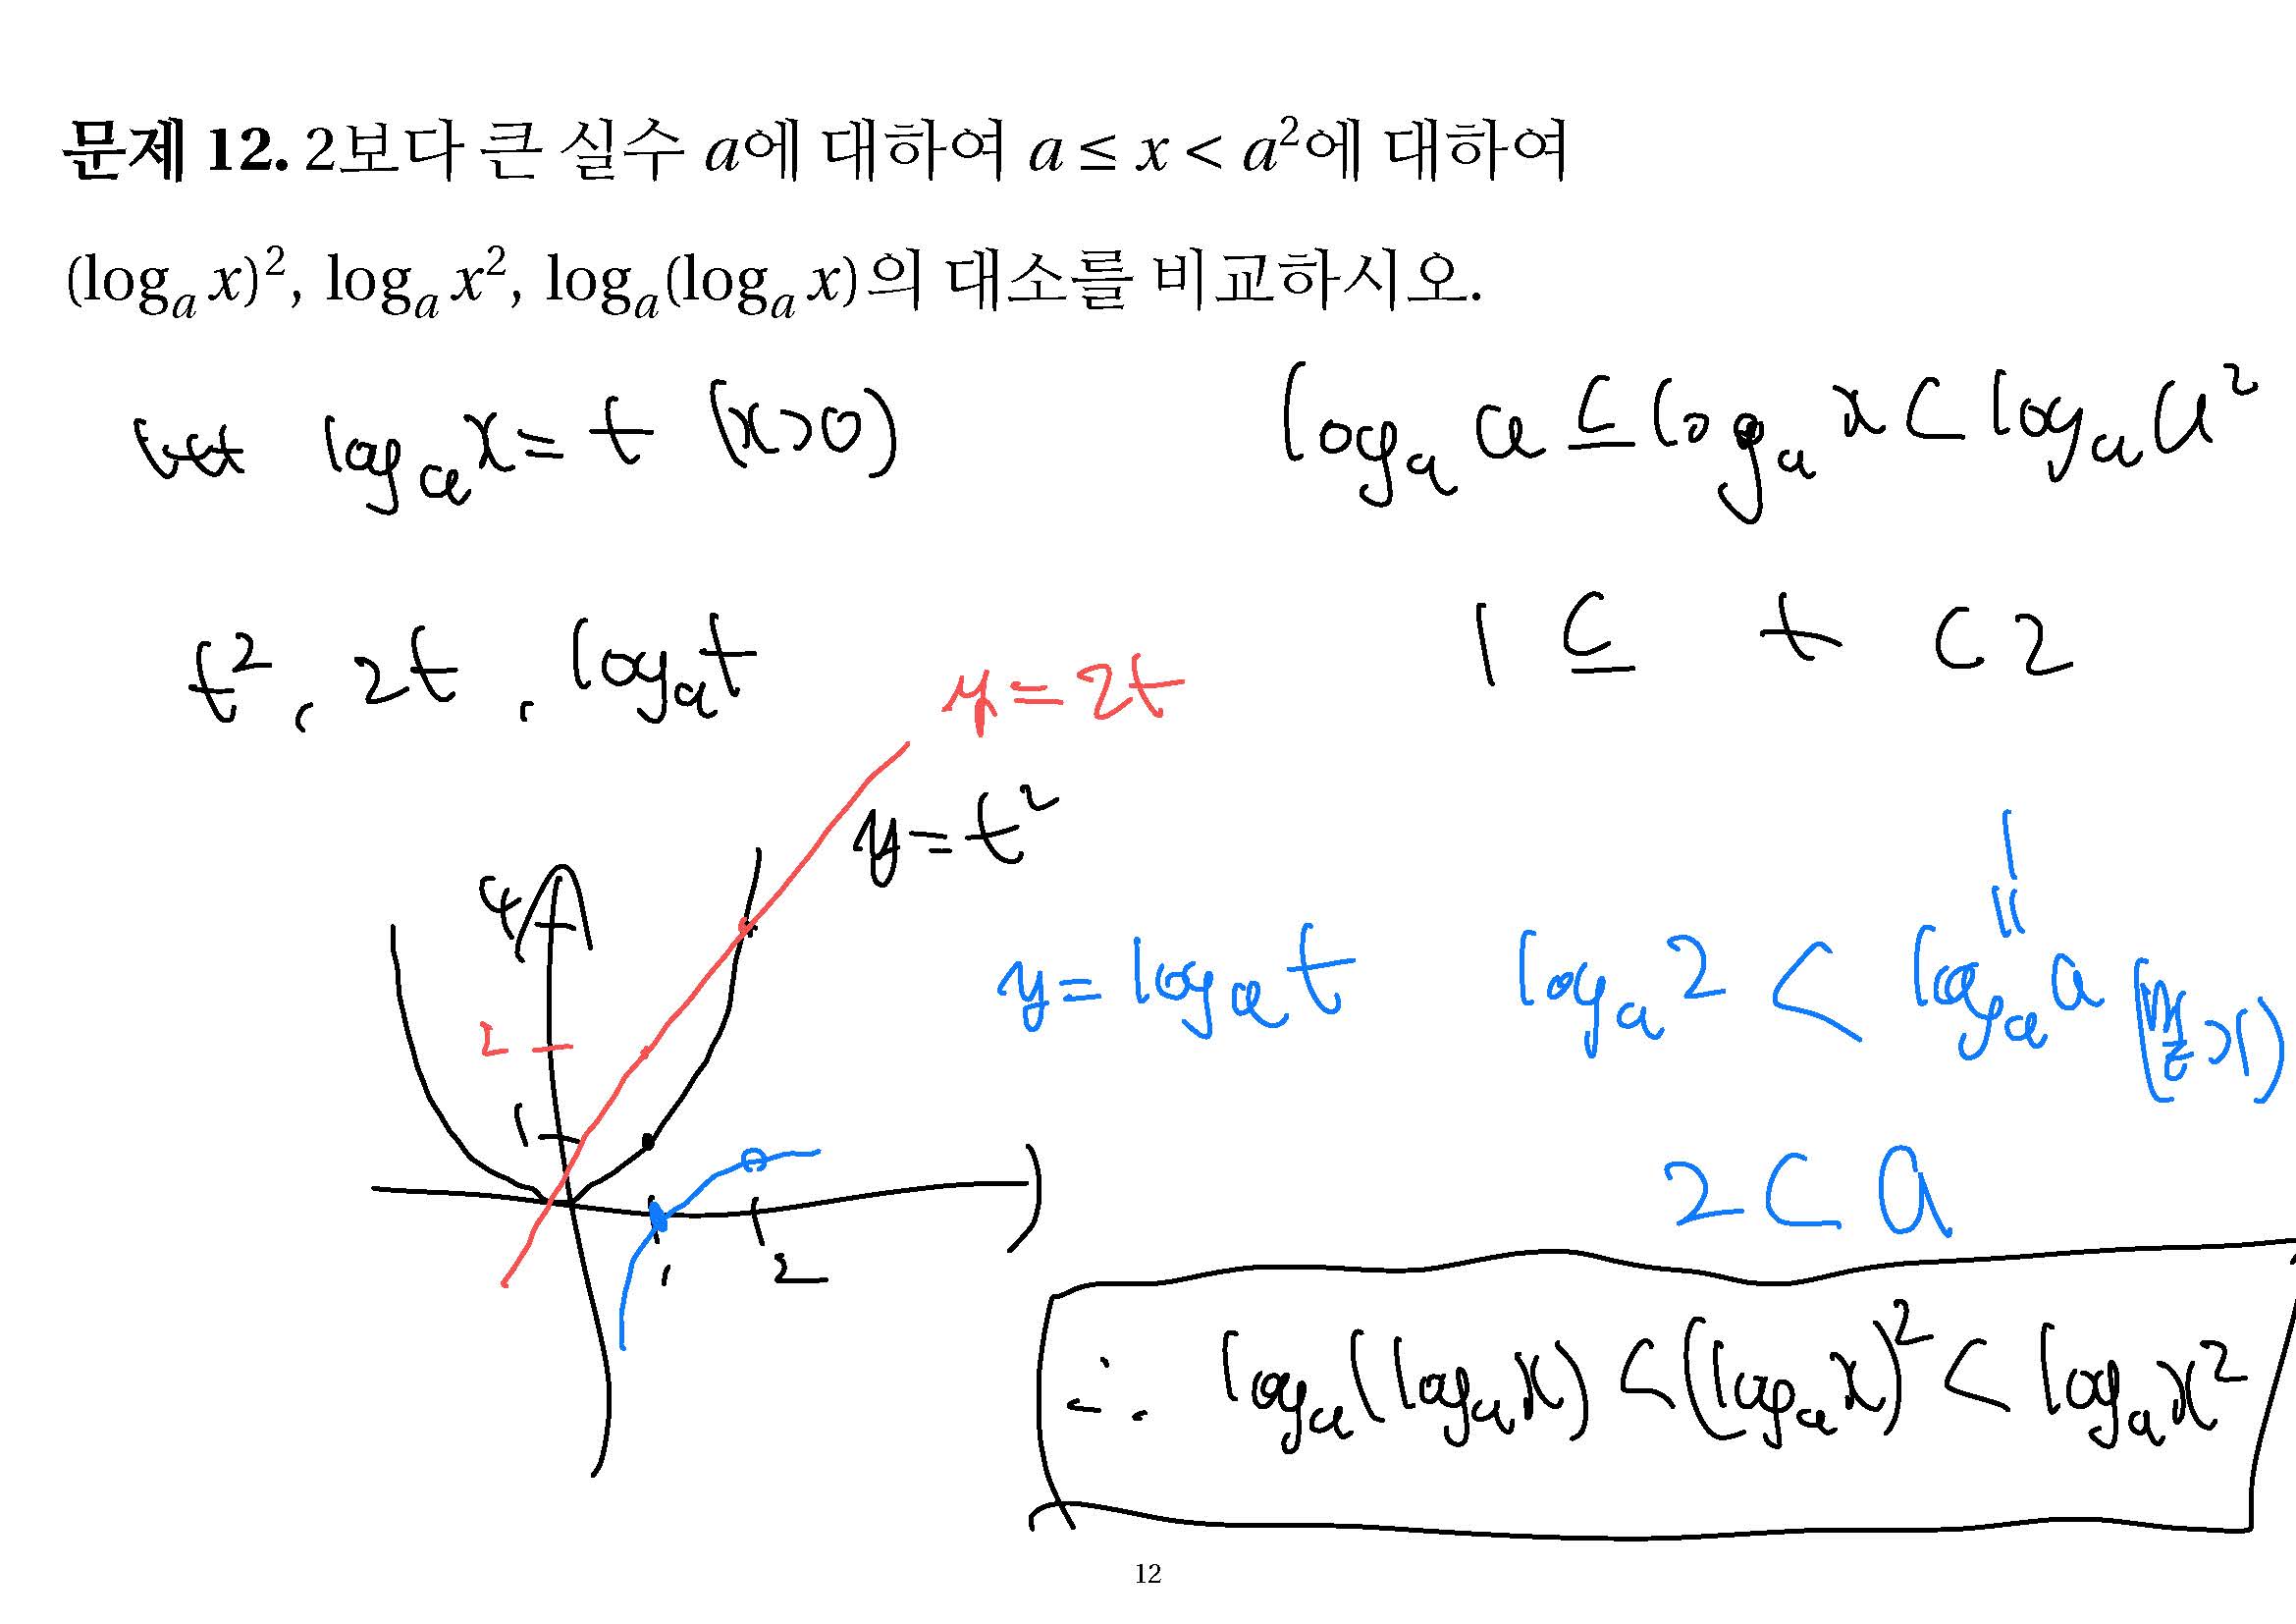 문제 12. 2보다 큰 실수 a에 대하여 a ≤ x < a²에 대하여
(logₐ x)², logₐ x², logₐ(logₐ x)의 대소를 비교하시오.
let logₐ x = t (x>0)
logₐ a ≤ logₐ x < logₐ a²
t², 2t, logₐ t
1 ≤ t < 2
y = 2t
y = t²
4
2
1
1
2
y = logₐ t
1
=
logₐ 2 < logₐ a (밑>1)
2 < a
∴ logₐ(logₐ x) < (logₐ x)² < logₐ x²
12